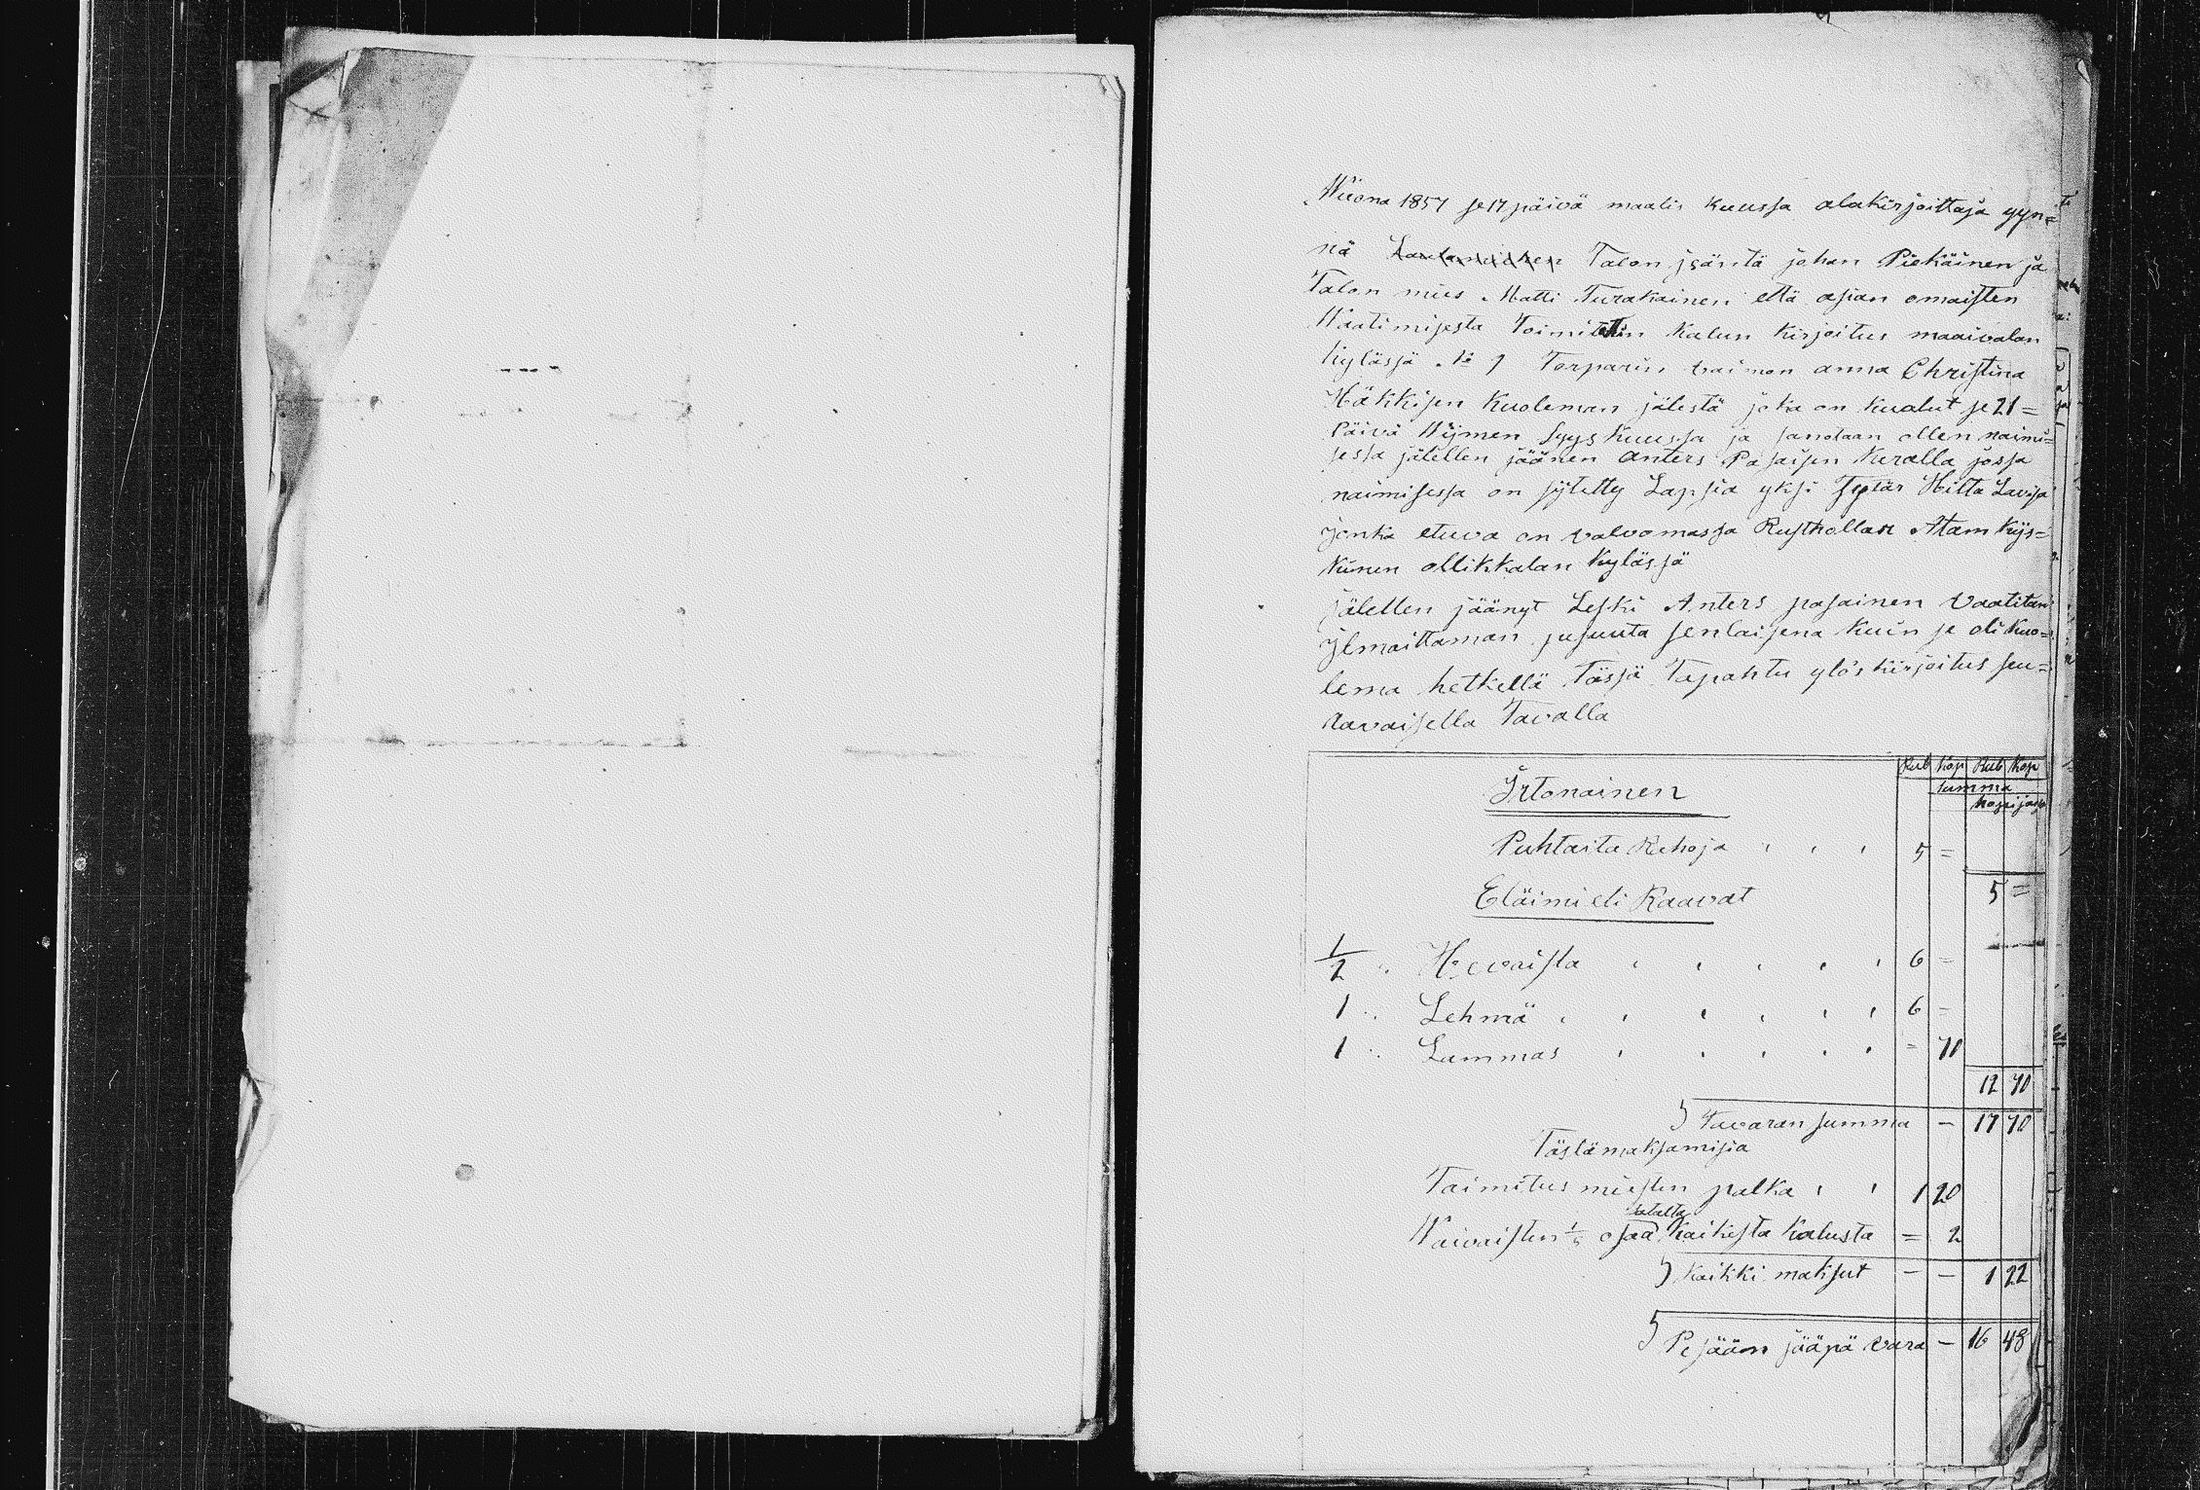 Wuona 1857 se 17 päivä maalis kuussa alakirjoittaja yyn=
nä Talon jsäntä johan Piekäinen ja
Talon mies Matti Turakainen että asian omaisten
Waatimisesta Toimitettiin Kalun Kirjoitus maaivalan
kylässä No 7 Torparin vaimon anna Christina
Häkkisen Kuoleman jälestä joka on kualut se 21=
Päivä Wijmen Syys Kuussa ja sanotaan ollen naimi=
sessa jälellen jäänen anters Pasaisen Keralla jossa
naimisessa on sijtetty Lapsia yksi Tytär Hitta Lavisa
jonka etuva on valvomassa Rusthollari Atam Kijs=
kinen ollikkalan Kylässä
jälellen jäänyt Leski Anters pasainen Vaatitan
jlmaittaman pesuuta senlaisena Kuin se oli Kuo=
lema hetkellä Tässä Tapahtu ylöskirjoitus seu=
ravaisella Tavalla
Rub Kop Rub Kop
Summa
hopijassa
Jrtonainen
Puhtaita Rahoja 5 =
5 =
Eläimi eli Raavat
1/2 Hevaista 6 =
1 Lehmä 6 =
1 Lammas = 70
12 70
Tavaran summa - 17 70
Tästä maksamisia
Taimitus miesten palka 1 20
satalta
Waivaisten 1/8 osaa Kaikesta Kalusta = 2
Kaikki maksut - - 1 22
Pesään jääpä vara - 16 48